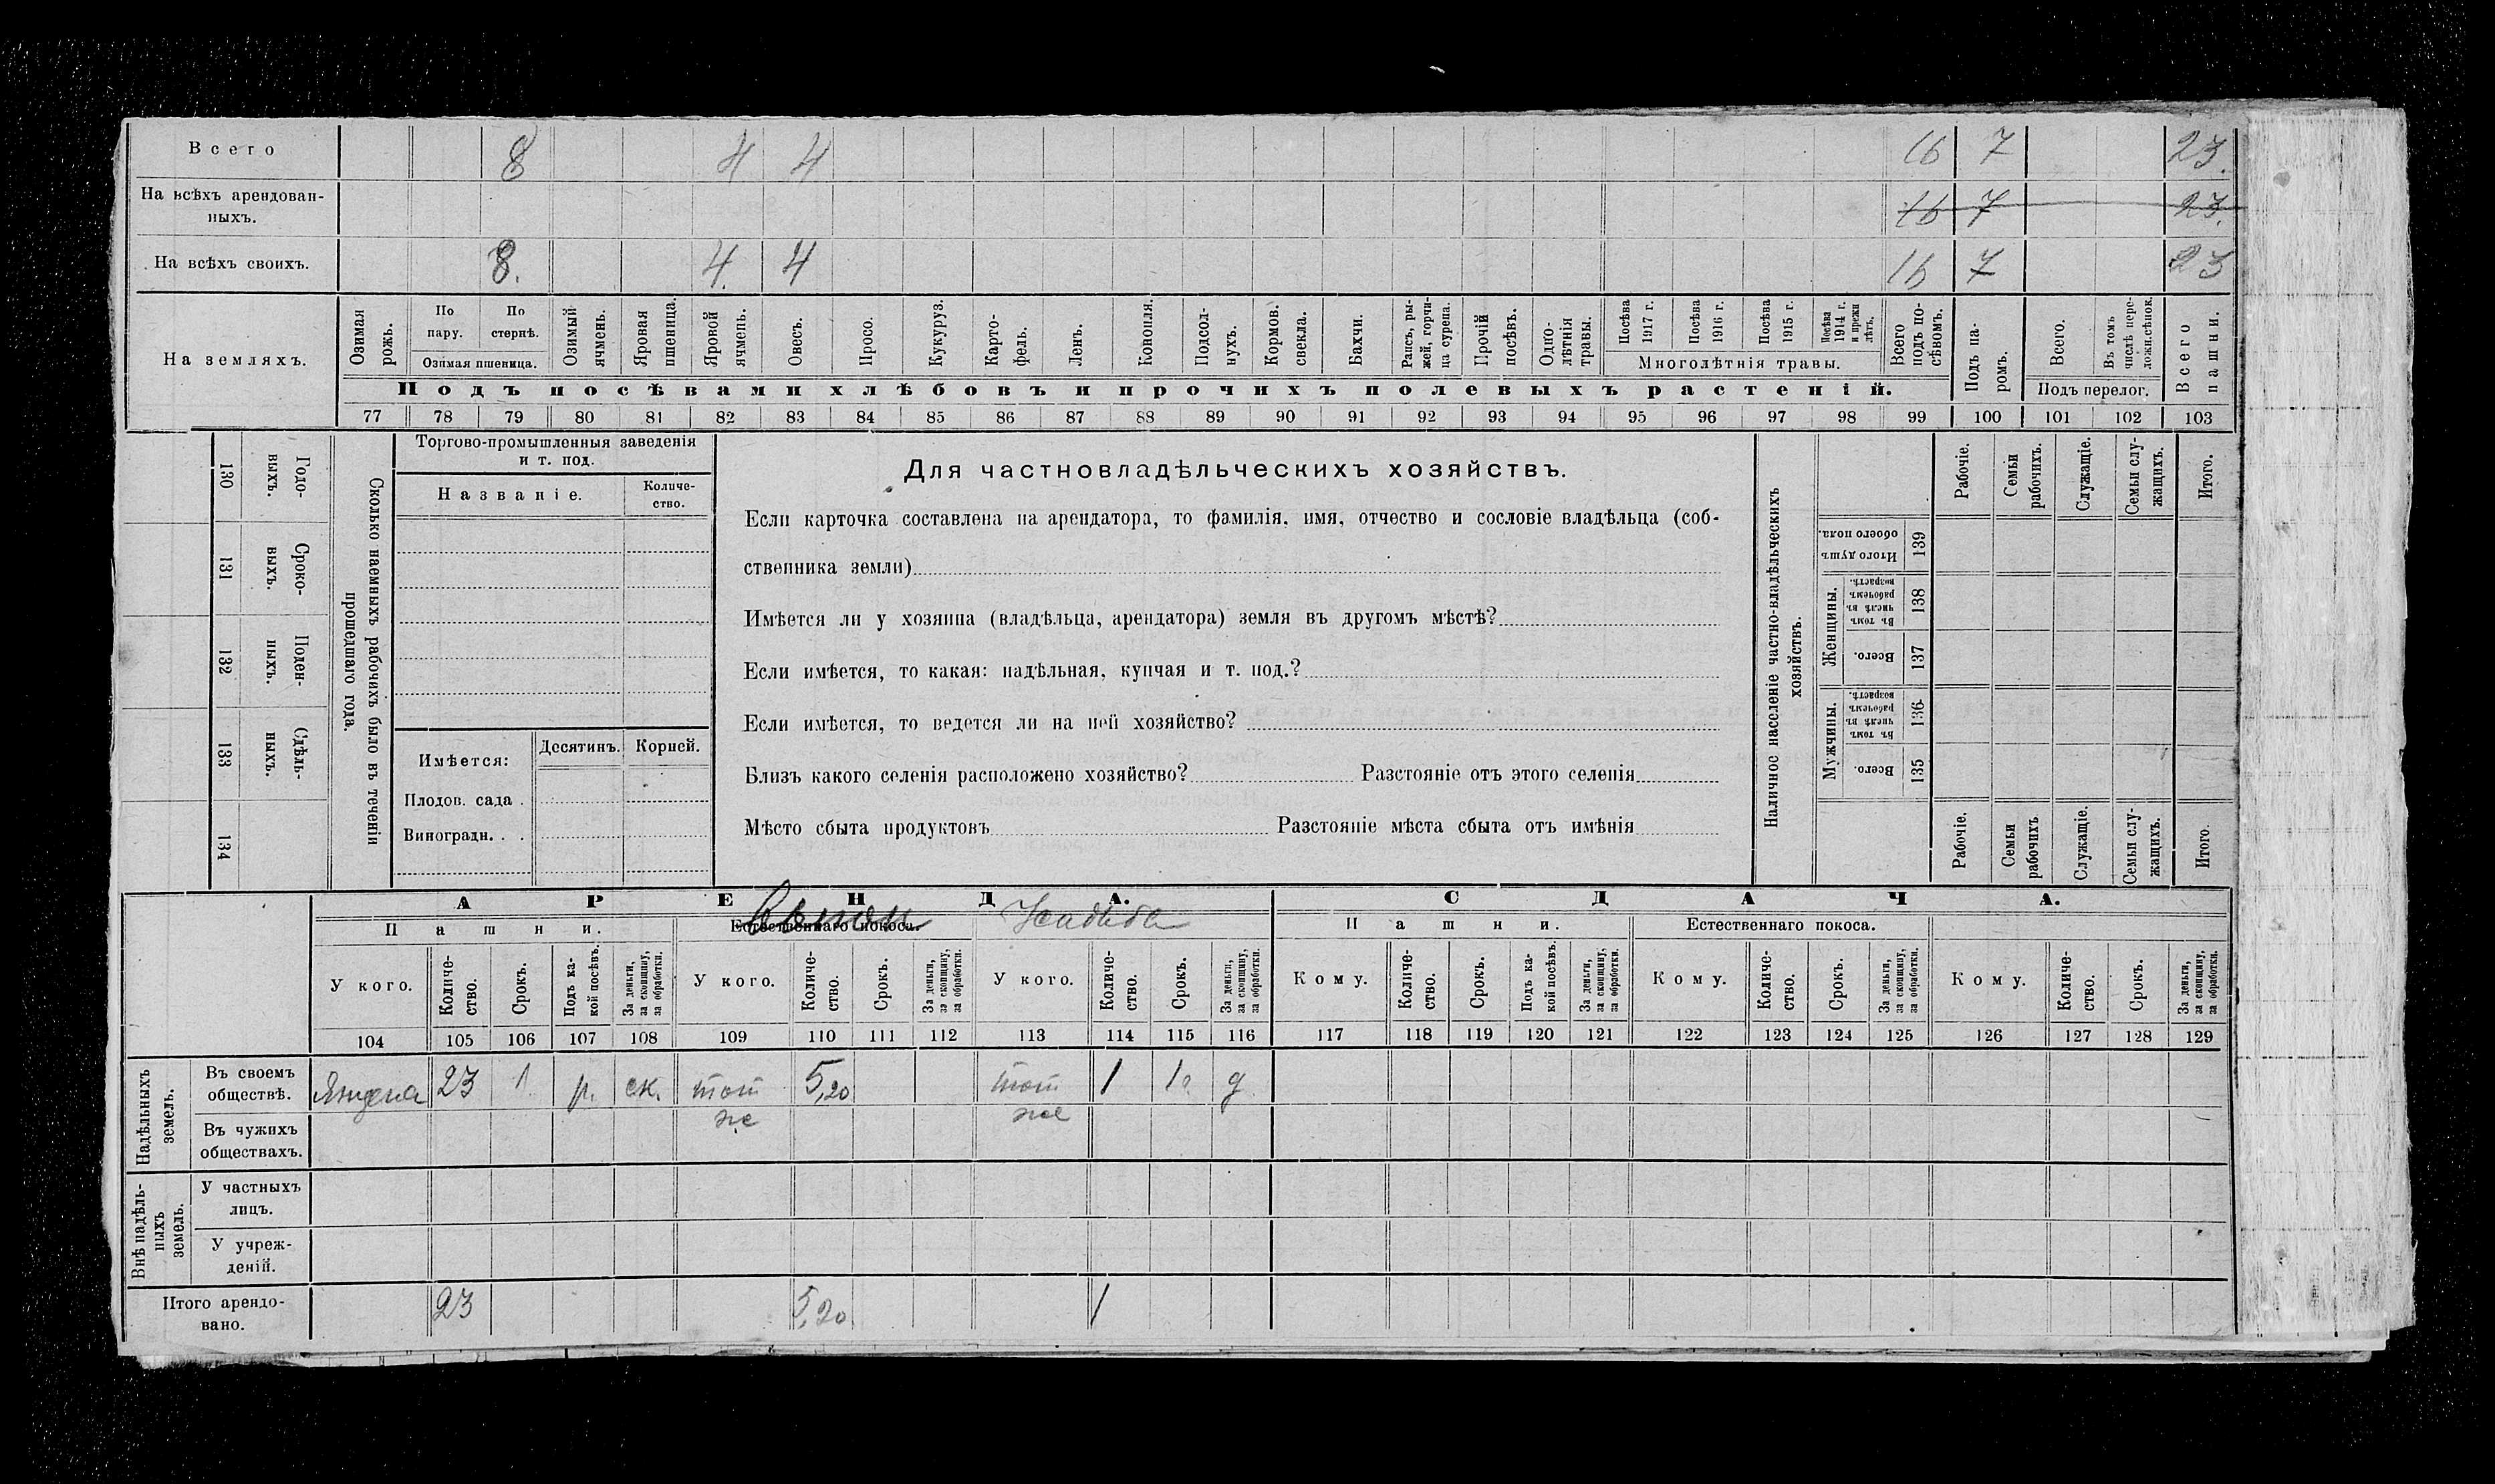 Всего 8 4 4 16 7 23.
На всѣхъ арендован-
ныхъ. 16 7 23.
На всѣхъ своихъ. 8. 4. 4 16 7 23
На земляхъ.
Озимая рожь.
По пару.
По стернѣ.
Озимая пшеница.
Озимый ячмень.
Яровая пшеница.
Яровой ячмень.
Овесъ.
Просо.
Кукуруз.
Карто-
фель.
Ленъ.
Конопля.
Подсол-
нухъ.
Кормов.
свекла.
Бахчи.
Рапсъ, ры-
жей, горчи-
ца сурепа.
Прочій
посѣвъ.
Одно-
лѣтнія
травы.
Посѣва
1917 г.
Посѣва
1916 г.
Посѣва
1915 г.
Посѣва
1914 г.
и прежн
лѣтъ.
Многолѣтнія травы.
Всего
подъ по-
сѣвомъ.
Подъ па-
ромъ.
Всего.
Въ томъ
числѣ пере-
ложн.сѣнок.
Подъ перелог.
Всего
пашни.
Подъ посѣвами хлѣбовъ и прочихъ полевыхъ растеній.
77 78 79 80 81 82 83 84 85 86 87 88 89 90 91 92 93 94 95 96 97 98 99 100 101 102 103
Сколько наемныхъ рабочихъ было въ теченіи
прошедшаго года.
Годо-
выхъ.
130
Сроко-
выхъ.
131
Поден-
ныхъ.
132
Сдѣль-
ныхъ.
133
134
Торгово-промышленныя заведенія
и т. под.
Названіе.
Количе-
ство.
Имѣется:
Десятинъ.
Корней.
Плодов. сада .
Виноградн. . .
Для частновладѣльческихъ хозяйствъ.
Если карточка составлена на арендатора, то фамилія, имя, отчество и сословіе владѣльца (соб-
ственника земли)
Имѣется ли у хозяина (владѣльца, арендатора) земля въ другомъ мѣстѣ?
Если имѣется, то какая: надѣльная, купчая и т. под.?
Если имѣется, то ведется ли на ней хозяйство?
Близъ какого селенія расположено хозяйство? Разстояніе отъ этого селенія
Мѣсто сбыта продуктовъ Разстояніе мѣста сбыта отъ имѣнія
Наличное населеніе частно-владѣльческихъ
хозяйствъ.
Рабочіе.
Семьи
рабочихъ.
Служащіе.
Семьи слу-
жащихъ.
Итого.
Итого душъ
обоего пола.
139
Женщины.
Въ томъ
числѣ въ
рабочемъ
возрастѣ.
138
Всего.
137
Мужчины.
Въ томъ
числѣ въ
рабочемъ
возрастѣ.
136
Всего.
135
Рабочіе.
Семьи
рабочихъ
Служащіе.
Семьи слу-
жащихъ.
Итого.
АРЕНДА.
СДАЧА.
Пашни.
Естественнаго покоса.
Усадьба
Пашни.
Естественнаго покоса.
У кого.
Количе-
ство.
Срокъ.
Подъ ка-
кой посѣвъ.
За деньги,
за скопщину,
за обработки.
У кого.
Количе-
ство.
Срокъ.
За деньги,
за скопщину,
за обработки.
У кого.
Количе-
ство.
Срокъ.
За деньги,
за скопщину,
за обработки.
Кому.
Количе-
ство.
Срокъ.
Подъ ка-
кой посѣвъ.
За деньги,
за скопщину,
за обработки.
Кому.
Количе-
ство.
Срокъ.
За деньги,
за скопщину,
за обработки.
Кому.
Количе-
ство.
Срокъ.
За деньги,
за скопщину,
за обработки.
104 105 106 107 108 109 110 111 112 113 114 115 116 117 118 119 120 121 122 123 124 125 126 127 128 129
Надѣльныхъ
земель.
Въ своемъ
обществѣ. 23 1 р. ск. тот же 5,20 тот же 1 1 д
Въ чужихъ
обществахъ.
Внѣ надѣль-
ныхъ
земель.
У частныхъ
лицъ.
У учреж-
деній.
Итого арендо-
вано. 23 5,20 1